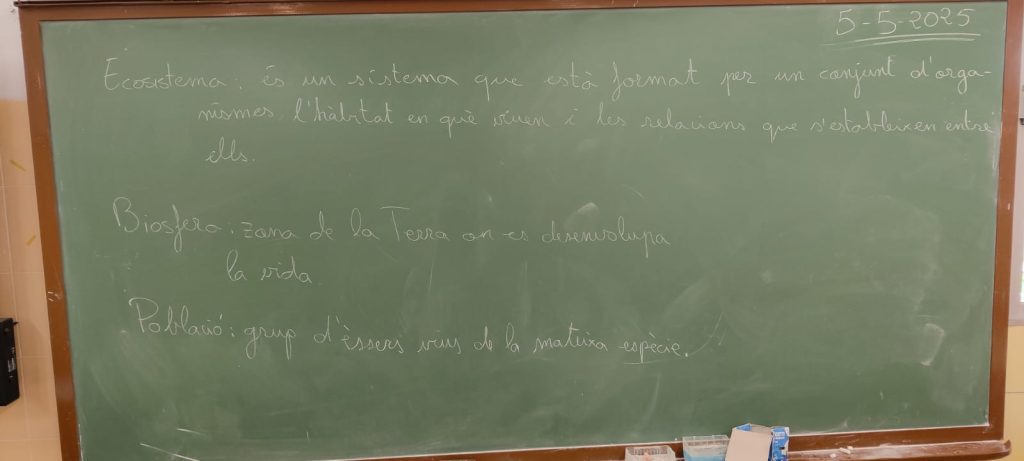 5-5-2025
Ecosistema: és un sistema que està format per un conjunt d'orga-
nismes, l'hàbitat en què viuen i les relacions que s'estableixen entre
ells.
Biosfera: zona de la Terra on es desenvolupa
la vida.
Població: grup d'èssers vius de la mateixa espècie.